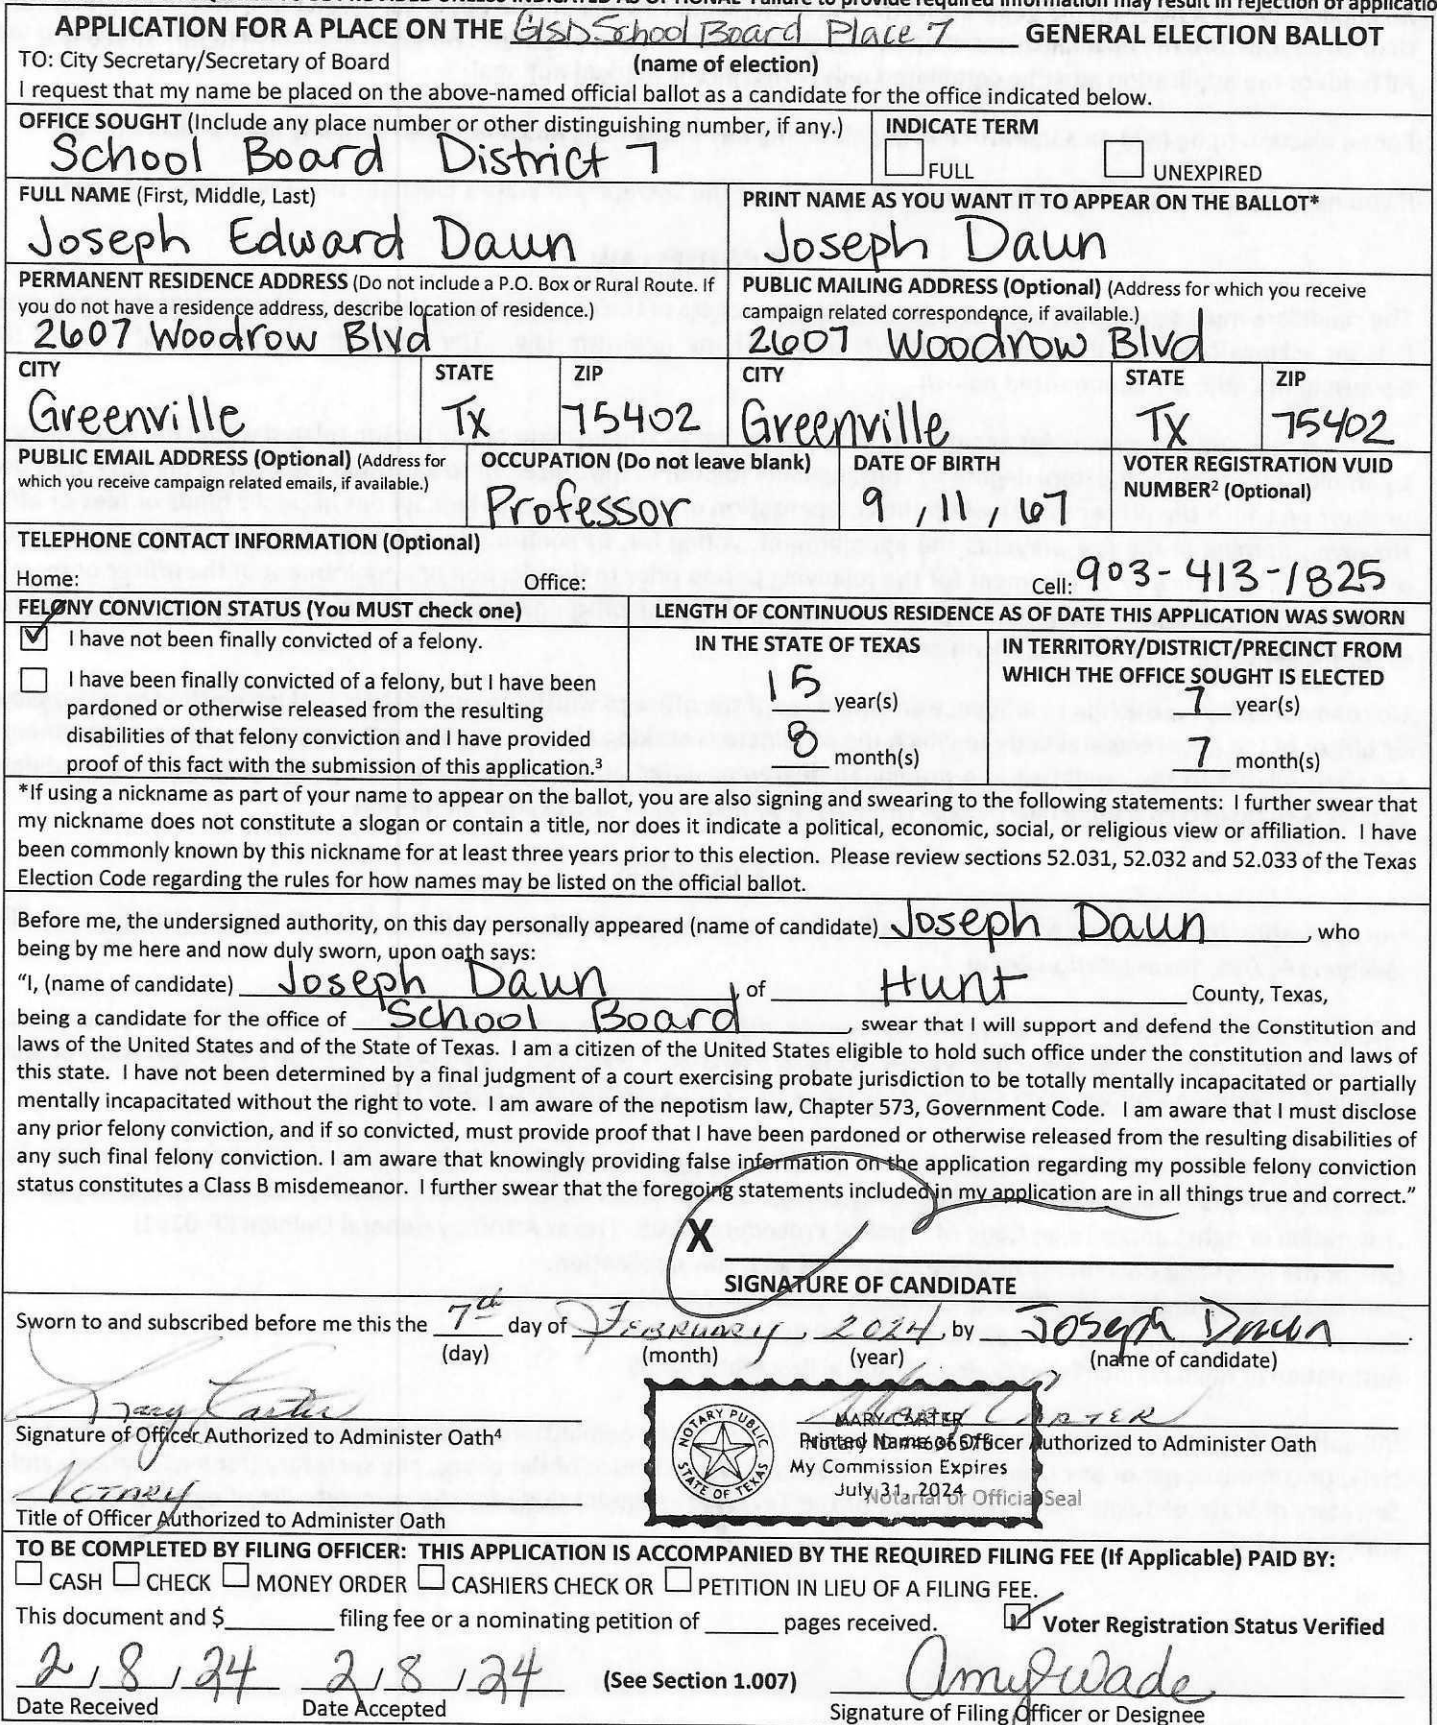 APPLICATION FOR A PLACE ON THE GISD School Board Place 7 GENERAL ELECTION BALLOT
TO: City Secretary/Secretary of Board (name of election)
I request that my name be placed on the above-named official ballot as a candidate for the office indicated below.
OFFICE SOUGHT (Include any place number or other distinguishing number, if any.)
School Board District 7
INDICATE TERM
FULL UNEXPIRED
FULL NAME (First, Middle, Last)
Joseph Edward Daun
PRINT NAME AS YOU WANT IT TO APPEAR ON THE BALLOT*
Joseph Daun
PERMANENT RESIDENCE ADDRESS (Do not include a P.O. Box or Rural Route. If
you do not have a residence address, describe location of residence.)
2607 Woodrow Blvd
PUBLIC MAILING ADDRESS (Optional) (Address for which you receive
campaign related correspondence, if available.)
2607 Woodrow Blvd
CITY STATE ZIP CITY STATE ZIP
Greenville Tx 75402 Greenville Tx 75402
PUBLIC EMAIL ADDRESS (Optional) (Address for
which you receive campaign related emails, if available.)
OCCUPATION (Do not leave blank)
Professor
DATE OF BIRTH
9 / 11 / 67
VOTER REGISTRATION VUID
NUMBER² (Optional)
TELEPHONE CONTACT INFORMATION (Optional)
Home: Office: Cell: 903-413-1825
FELONY CONVICTION STATUS (You MUST check one)
I have not been finally convicted of a felony.
I have been finally convicted of a felony, but I have been
pardoned or otherwise released from the resulting
disabilities of that felony conviction and I have provided
proof of this fact with the submission of this application.³
LENGTH OF CONTINUOUS RESIDENCE AS OF DATE THIS APPLICATION WAS SWORN
IN THE STATE OF TEXAS
15 year(s)
8 month(s)
IN TERRITORY/DISTRICT/PRECINCT FROM
WHICH THE OFFICE SOUGHT IS ELECTED
7 year(s)
7 month(s)
*If using a nickname as part of your name to appear on the ballot, you are also signing and swearing to the following statements: I further swear that
my nickname does not constitute a slogan or contain a title, nor does it indicate a political, economic, social, or religious view or affiliation. I have
been commonly known by this nickname for at least three years prior to this election. Please review sections 52.031, 52.032 and 52.033 of the Texas
Election Code regarding the rules for how names may be listed on the official ballot.
Before me, the undersigned authority, on this day personally appeared (name of candidate) Joseph Daun, who
being by me here and now duly sworn, upon oath says:
"I, (name of candidate) Joseph Daun, of Hunt County, Texas,
being a candidate for the office of School Board, swear that I will support and defend the Constitution and
laws of the United States and of the State of Texas. I am a citizen of the United States eligible to hold such office under the constitution and laws of
this state. I have not been determined by a final judgment of a court exercising probate jurisdiction to be totally mentally incapacitated or partially
mentally incapacitated without the right to vote. I am aware of the nepotism law, Chapter 573, Government Code. I am aware that I must disclose
any prior felony conviction, and if so convicted, must provide proof that I have been pardoned or otherwise released from the resulting disabilities of
any such final felony conviction. I am aware that knowingly providing false information on the application regarding my possible felony conviction
status constitutes a Class B misdemeanor. I further swear that the foregoing statements included in my application are in all things true and correct."
X
SIGNATURE OF CANDIDATE
Sworn to and subscribed before me this the 7th day of February, 2024, by Joseph Daun
(day) (month) (year) (name of candidate)
Mary Carter
Signature of Officer Authorized to Administer Oath⁴
Mary Carter
Printed Name of Officer Authorized to Administer Oath
NOTARY PUBLIC
STATE OF TEXAS
MARY CARTER
My Commission Expires
July 31, 2024
Notarial or Official Seal
Notary
Title of Officer Authorized to Administer Oath
TO BE COMPLETED BY FILING OFFICER: THIS APPLICATION IS ACCOMPANIED BY THE REQUIRED FILING FEE (If Applicable) PAID BY:
CASH CHECK MONEY ORDER CASHIERS CHECK OR PETITION IN LIEU OF A FILING FEE.
This document and $ filing fee or a nominating petition of pages received. Voter Registration Status Verified
2 / 8 / 24 2 / 8 / 24 (See Section 1.007) Amy Wade
Date Received Date Accepted Signature of Filing Officer or Designee